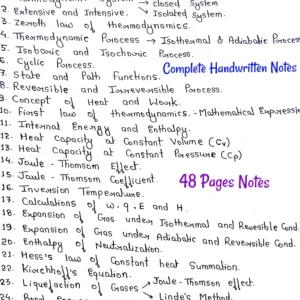 closed System
2. Extensive and Intensive. → Isolated System.
3. Zeroth law of thermodynamics.
4. Thermodynamic Porocess → Isothermal & Adiabatic Process
5. Isobaric and Isochoric Porocess.
6. Cyclic Porocess.
Complete Handwritten Notes
7. State and Path Functions.
8. Reversible and Irreversible Porocess.
9. Concept of Heat and Work.
10. First law of thermodynamics. - Mathematical Expression
11. Internal Energy and Enthalpy.
12. Heat Capacity at Constant Volume (Cv)
13. Heat Capacity at Constant Pressure (Cp)
14. Joule - Thomsom Effect.
15. Joule - Thomsom Coefficient.
48 Pages Notes
16. Inversion Temperature.
17. Calculations of w, q, E and H.
18. Expansion of Gas under Isothermal and Revesible Cond.
19. Expansion of Gas under Adiabatic and Reversible Cond.
20. Enthalpy of Neutralization.
21. Hess's law of Constant heat Summation.
22. Kirchhoff's Equation.
23. Liquefaction of Gases → Joule - Thomson effect.
24. → Linde's Method.